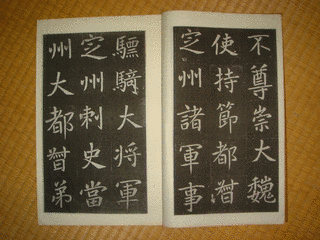 不尊崇大魏
使持節都督
定州諸軍事
驃騎大將軍
定州刺史當
州大都督弟